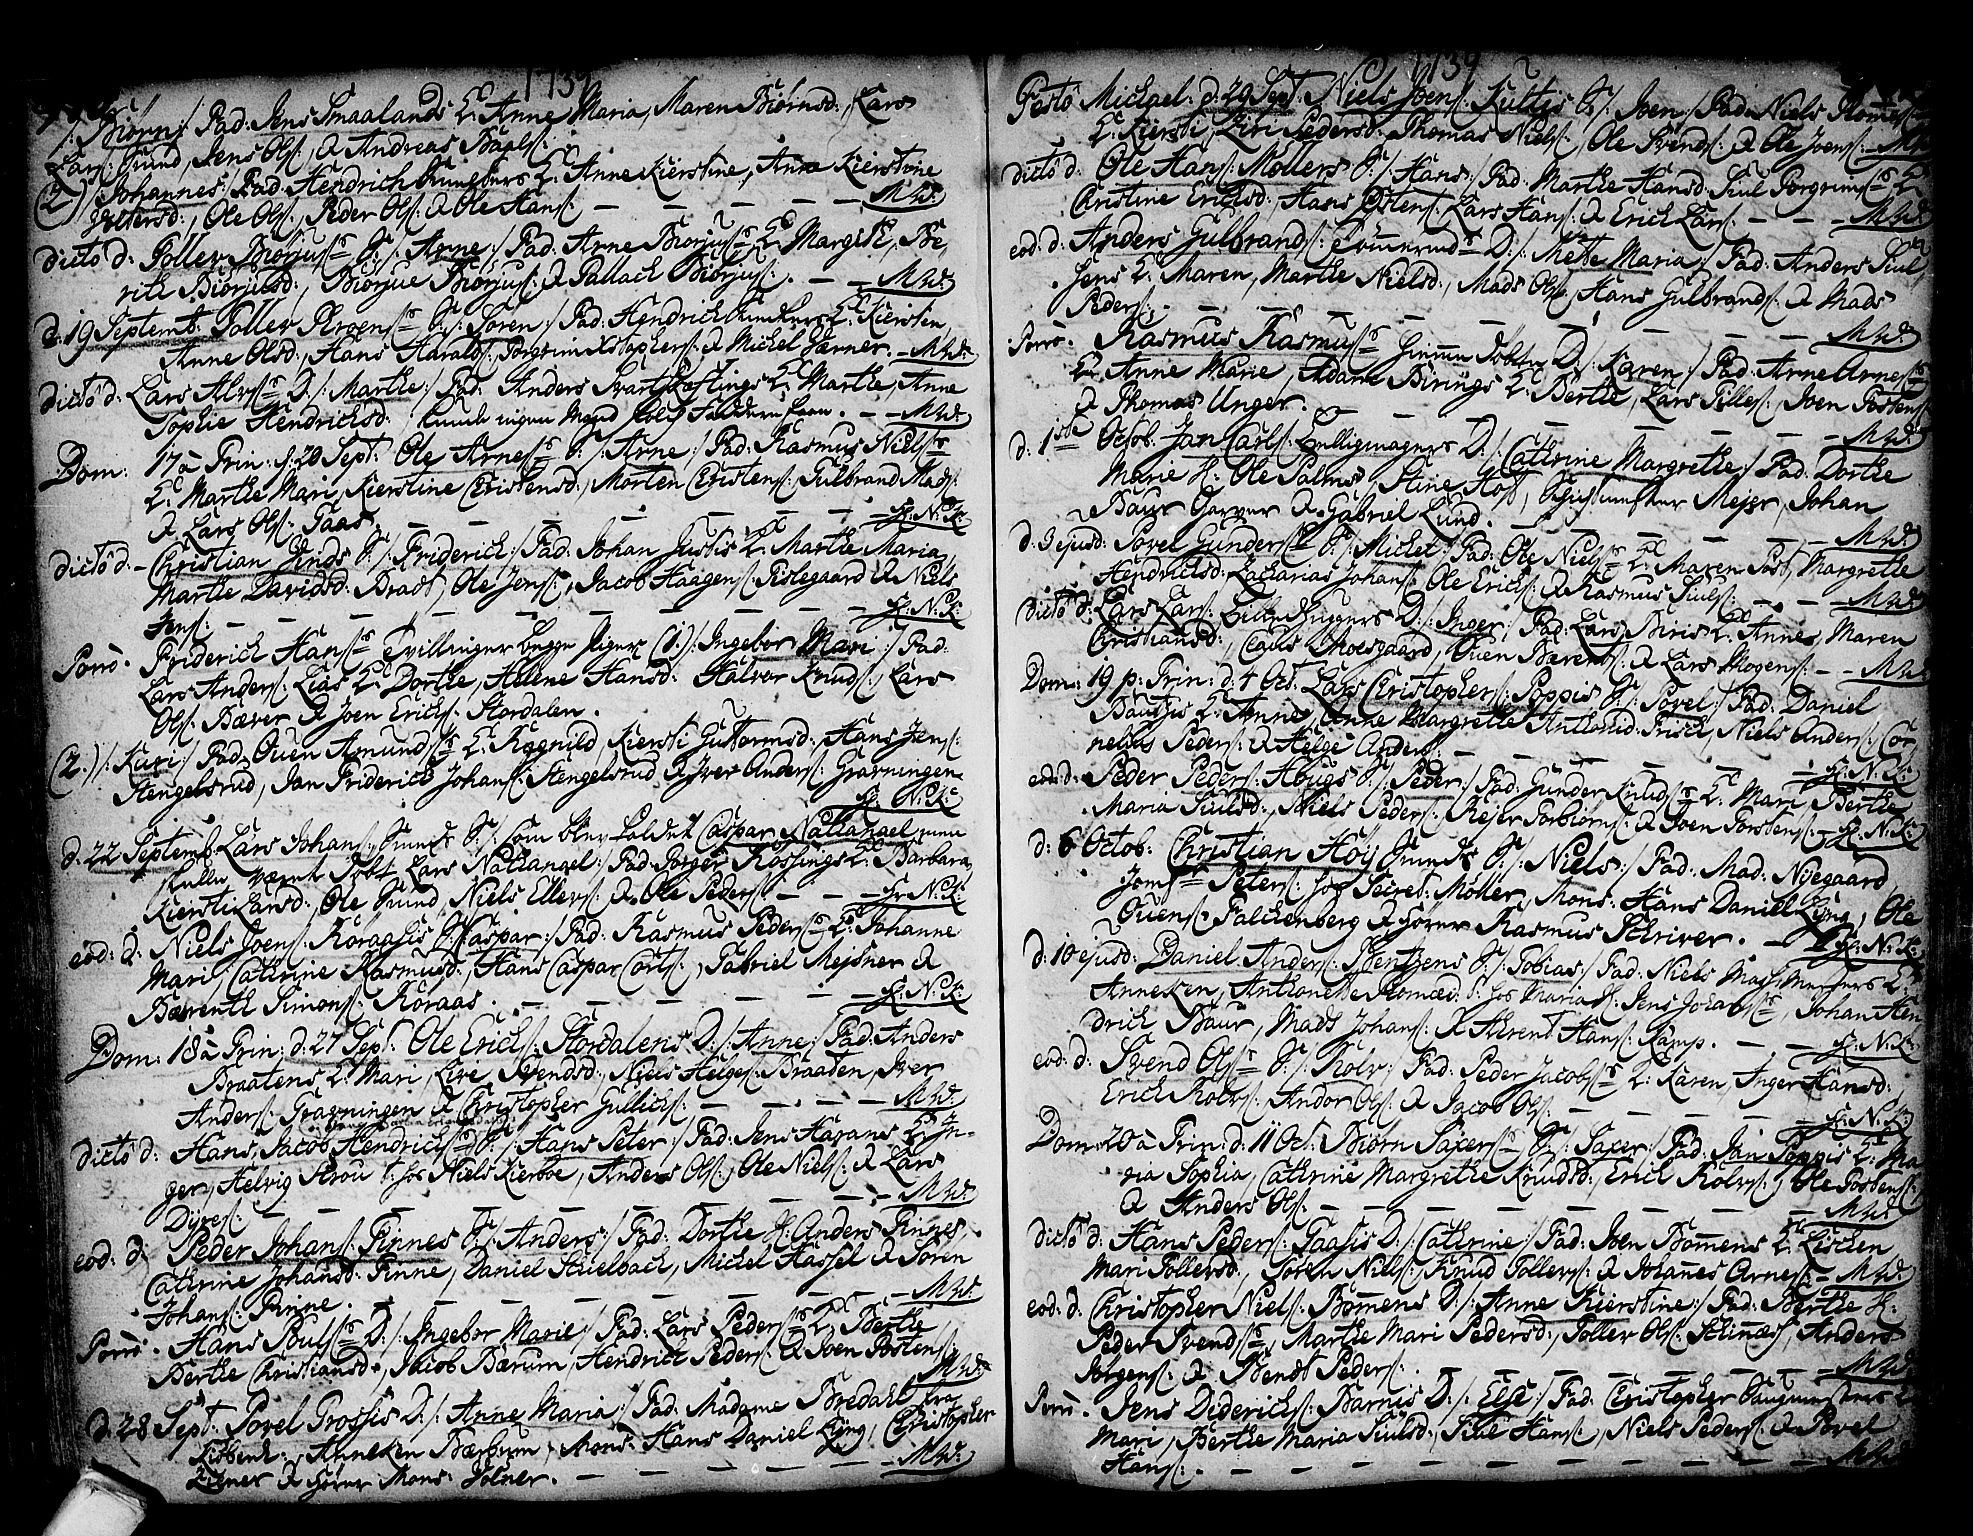 1739
/: Biørn :/ Fad: Jens Smaalands H: Anne Maria, Maren Biørnsd:, Lars
Lars: Sund, Jens Ols:, & Andreas
(2) /: Johannes :/ Fad: Hendrich H: Anne Kierstine, Anna Kierstine
Ole Ols:, Peder Ols: & Ole Hans: — — — — M W:
dicto d: Toller Biørjus: S: /: Arne :/ Fad: Arne Biørjus: H: Margit, Be-
rith Biørjusd:, Biørjue Biørjus: & Tallach Biørjus: — — M W:
d: 19 Septemb: Toller S: /: Søren :/ Fad: Hendrich H: Kiersten,
Anne Olsd:, Hans Haralds:, Torgrim & Michel Jærner. — M W:
dicto d: Lars Alvs: D: /: Marthe :/ Fad: Anders H: Marthe, Anne
Sophie Hendrichsd:, — — M W:
Dom: 17 à Trin: d: 20 Sept: Ole Arnes: S: /: Arne :/ Fad: Rasmus Niels:
H: Marthe Mari, Kierstine Christensd:, Morten Christens:, Gulbrand Mads:
& Lars Ols: Taas. — — — — — Fr: N: K:
dicto d. Christian S: /: Friderich :/ Fad: Johan H: Marthe Maria,
Marthe Davidsd: Bradt, Ole Jens:, Jacob Haagens: Tislegaard & Niels
Jens: — — — — — — — Fr: N: K:
Porrò. Friderich Hans: Tvillinger begge Piger (1.) /: Ingebor Mari :/ Fad:
Lars Anders: Lias H: Dorthe, Helene Hansd: Halvor Knuds:, Lars
Ols: Bæver & Joen Erichs: Stordalen.
(2.) /: Kari :/ Fad: Ouen Amunds: H: Ragnild, Kiersti Guttormsd:, Hans Jens:
Stengelsrud, Jan Friderich Johans: Stengelsrud & Iver Anders: Gravningen.
Fr: N: K:
d: 22 Septemb: Lars Johans: S: som blev kaldet Caspar Nathanael men
skulle været Døbt Lars Nathanael :/ Fad: Jørger Røslings H: Barbara,
Kiersti Larsd:, Ole Sund, Niels Ellevs: & Ole Peders: — — Fr: N: K:
eod: d: Niels Joens: Koraasis S: /: Caspar :/ Fad: Rasmus Peders: H: Johanne
Mari, Cathrine Rasmusd:, Hans Caspar Corts:, Gabriel Mejsner &
Bærenth Simons: Koraas. — — — — — Fr: N: K:
Dom: 18 à Trin: d: 27 Sept: Ole Erichs: Stordalens D: /: Anne :/ Fad: Anders
Braatens H: Mari, Live Svendsd:, Niels Helges: Braaten, Iver
Anders: Gravningen & Christopher Gullichs: — — — M W:
dicto d: Hans Jacob Hendrichs: S: /: Hans Peter :/ Fad: Jens Harams H: In-
ger, Helvig Strøu t: hos Niels Kierboe, Anders Ols:, Ole Niels: & Lars
Dyres: — — — — — — — M W:
eod: d: Peder Johans: Finnes S: /: Anders :/ Fad: Dorthe H: Anders Finnes,
Cathrine Johansd: Finne, Daniel Stuelbach, Michel Hassel & Søren
Johans: Finne. — — — — — — M W:
Porrò. Hans Pouls: D: /: Ingebor Marie :/ Fad: Lars Peders: H: Berthe,
Berthe Christiansd:, Jacob Bærum, Hendrich Peders: & Joen Tostens:
M W:
d: 28 Sept: Povel Grossis D: /: Anne Maria :/ Fad: Madame Bredahl fra
Anneken Bærbum, Mons: Hans Daniel Lÿng, Christopher
& Mons: Jolner. — — — — — M W:
1739
Festo Michael: d: 29 Sept: Niels Joens: Kultis S: /: Joen :/ Fad: Niels
H: Kiersti, Live Pedersd:, Thomas Niels:, Ole Svends: & Ole Joens: — M W:
dicto d: Ole Hans: Møllers S: /: Hans :/ Fad: Marthe Hansd:, Siul Torgrims: H:
Christine Erichsd:, Hans Ostens:, Lars Hans: & Erich Lars: — — — M W:
eod: d: Anders Gulbrands: D: /: Mette Maria :/ Fad: Anders Siul,
Jens H: Maren, Marthe Nielsd:, Mads Ols:, Hans Gulbrands: & Mads
Peders: — — — — — — — M W:
Porrò. Rasmus Rasmus: D: /: Karen :/ Fad: Arne Arnes:
H: Anne Marie, Adam Birings H: Berthe, Lars Tilles:, Joen Tostens:
& Thomas Unger. — — — — — — M W:
d: 1ste Octob: Jan Carls: D: /: Cathrine Margrethe :/ Fad: Dorthe
Marie H: Ole Palms, Stine Høst, Meyer, Johan
Baur Garver & Gabriel Lund. — — — — M W:
d: 3 ejusd: Povel Gunders: S: /: Michel :/ Fad: Ole Niels: H: Maren Post, Margrethe
Hendrichsd:, Zacharias Johans:, Ole Erichs: & Rasmus Siuls: — — M W:
dicto d: Lars Lars: D: /: Inger :/ Fad: Lars Biris H: Anne, Maren
Christiansd:, Claus Moesgaard, Ouen Bærents: & Lars Mogens: — — M W:
Dom: 19 p: Trin: d: 4 Oct: Lars Christophers: Poppis S: /: Povel :/ Fad: Daniel
H: Anne, Anne Margrethe Anthonid: Frisch, Niels Anders:, Cor-
nelius Peders: & Helge Anders: — — — — Fr: N: K:
eod: d: Peder Peders: Hougs S: /: Peder :/ Fad: Gunder Knuds: H: Mari, Berthe
Maria Siulsd:, Niels Peders:, Rejer Torbiørns: & Joen Torstens: — Fr: N: K:
d: 6 Octob: Christian Høÿ S: /: Niels :/ Fad: Mad: Nÿegaard,
Peters: hos Secret: Møller, Mons: Hans Daniel Lÿng, Ole
Ouens: Falchenberg & Rasmus Schriver. — Fr: N: K:
d: 10 ejusd: Daniel Anders: Bentzens S: /: Tobias :/ Fad: Niels H:
Anneken, Anthonette t: hos Maria H: Jens Jacobs:, Johan Hen-
drich Baur, Mads Johans: & Ahrent Hans: Kamp. — — Fr: N: K:
eod: d: Svend Ols: S: /: Rolv :/ Fad: Peder Jacobs: H: Karen, Inger Hansd:
Erich Rolvs:, Andor Ols: & Jacob Ols: — — — — Fr: N: K:
Dom: 20 à Trin: d: 11 Oct: Biørn Saxes: S: /: Saxer :/ Fad: Jan Poppis H: Ma-
ria Sophia, Cathrine Margrethe Knudsd:, Erich Rolvs:, Ole Tostens:
& Anders Ols: — — — — — — M W:
dicto d: Hans Peders: Taasis D: /: Cathrine :/ Fad: Joen Bomens H: Lischen,
Mari Tollersd:, Søren Niels:, Knud Tollers: & Johannes Arnes: — M W:
eod: d: Christopher Niels: Bomens D: /: Anne Kierstine :/ Fad: Berthe H:
Peder Svends:, Marthe Mari Pedersd:, Toller Ols: Anders
Jørgens: & Bendt Peders: — — — — — M W:
Porrò. Jens Diderichs: Barnis D: /: Else :/ Fad: Christopher H:
Mari, Berthe Maria Siulsd:, Siul Hans:, Niels Peders: & Povel
Hans: — — — — — — — M W: